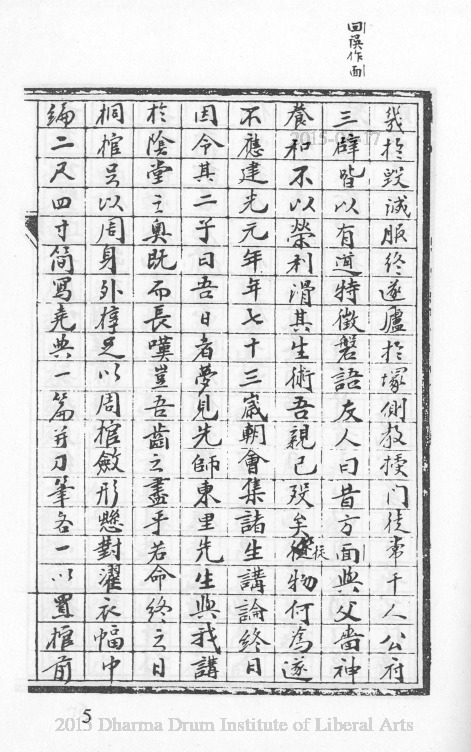 回誤作面
幾於毀滅服終遂廬於塚側教授门徒常千人公府
三辟皆以有道特徵磐語友人曰昔方面與父嗇神
養和不以榮利滑其生術吾親已歿矣從物何為遂
不應建光元年年七十三歲朝會集諸生講論終日
因令其二子曰吾日者夢見先師東里先生與我講
於陰堂之奧既而長嘆豈吾齒之盡乎若命終之日
桐棺足以周身外槨足以周棺斂形懸對濯衣幅中
編二尺四寸簡寫堯典一篇并刀筆各一以置棺前
5
2013 Dharma Drum Institute of Liberal Arts